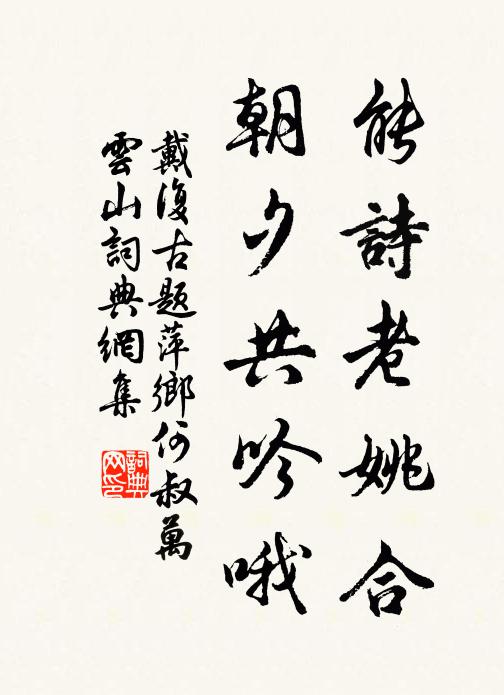 能詩老姚合
朝夕共吟哦
戴復古題萍鄉何叔萬
雲山詞典網集
詞典网印